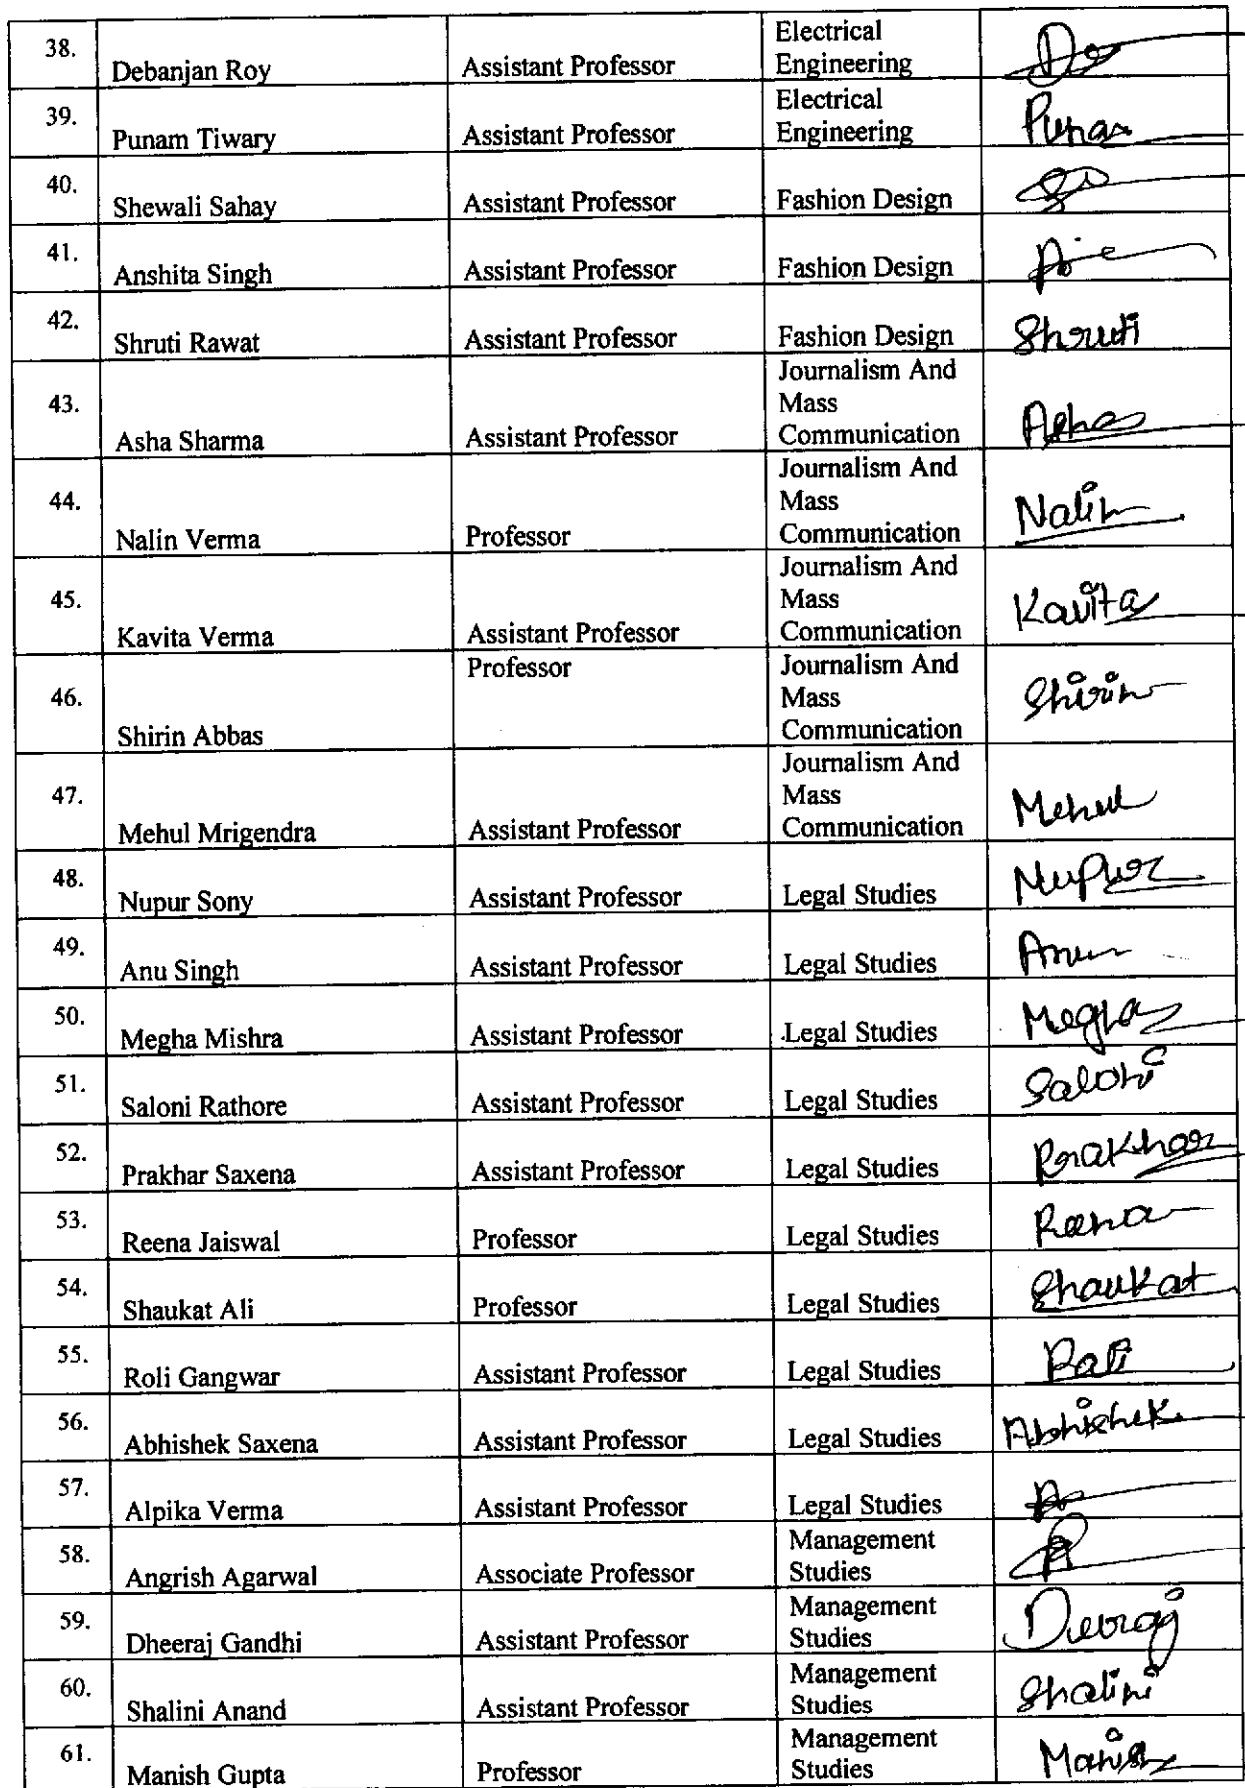 38. Debanjan Roy Assistant Professor Electrical Engineering
39. Punam Tiwary Assistant Professor Electrical Engineering Punam
40. Shewali Sahay Assistant Professor Fashion Design
41. Anshita Singh Assistant Professor Fashion Design
42. Shruti Rawat Assistant Professor Fashion Design Shruti
43. Asha Sharma Assistant Professor Journalism And Mass Communication Asha
44. Nalin Verma Professor Journalism And Mass Communication Nalin
45. Kavita Verma Assistant Professor Journalism And Mass Communication Kavita
46. Shirin Abbas Professor Journalism And Mass Communication Shirin
47. Mehul Mrigendra Assistant Professor Journalism And Mass Communication Mehul
48. Nupur Sony Assistant Professor Legal Studies Nupur
49. Anu Singh Assistant Professor Legal Studies Anu
50. Megha Mishra Assistant Professor Legal Studies Megha
51. Saloni Rathore Assistant Professor Legal Studies Saloni
52. Prakhar Saxena Assistant Professor Legal Studies Prakhar
53. Reena Jaiswal Professor Legal Studies Reena
54. Shaukat Ali Professor Legal Studies Shaukat
55. Roli Gangwar Assistant Professor Legal Studies Roli
56. Abhishek Saxena Assistant Professor Legal Studies Abhishek
57. Alpika Verma Assistant Professor Legal Studies
58. Angrish Agarwal Associate Professor Management Studies
59. Dheeraj Gandhi Assistant Professor Management Studies
60. Shalini Anand Assistant Professor Management Studies Shalini
61. Manish Gupta Professor Management Studies Manish